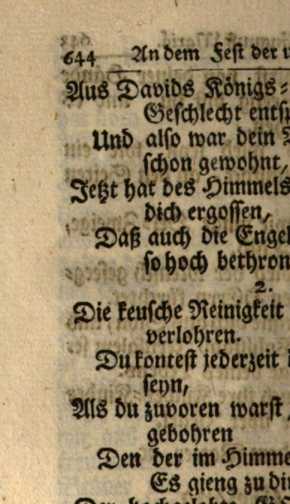 644 An dem Fest der
Aus Davids Königs-
Geschlecht
Und also war dein
schon gewohnt,
Jetzt hat des Himmels
dich ergossen,
Daß auch die
so hoch
2.
Die keusche Reinigkeit
verlohren.
Du kontest jederzeit
seyn,
Als du zuvoren warst,
gebohren
Den der im
Es gieng zu